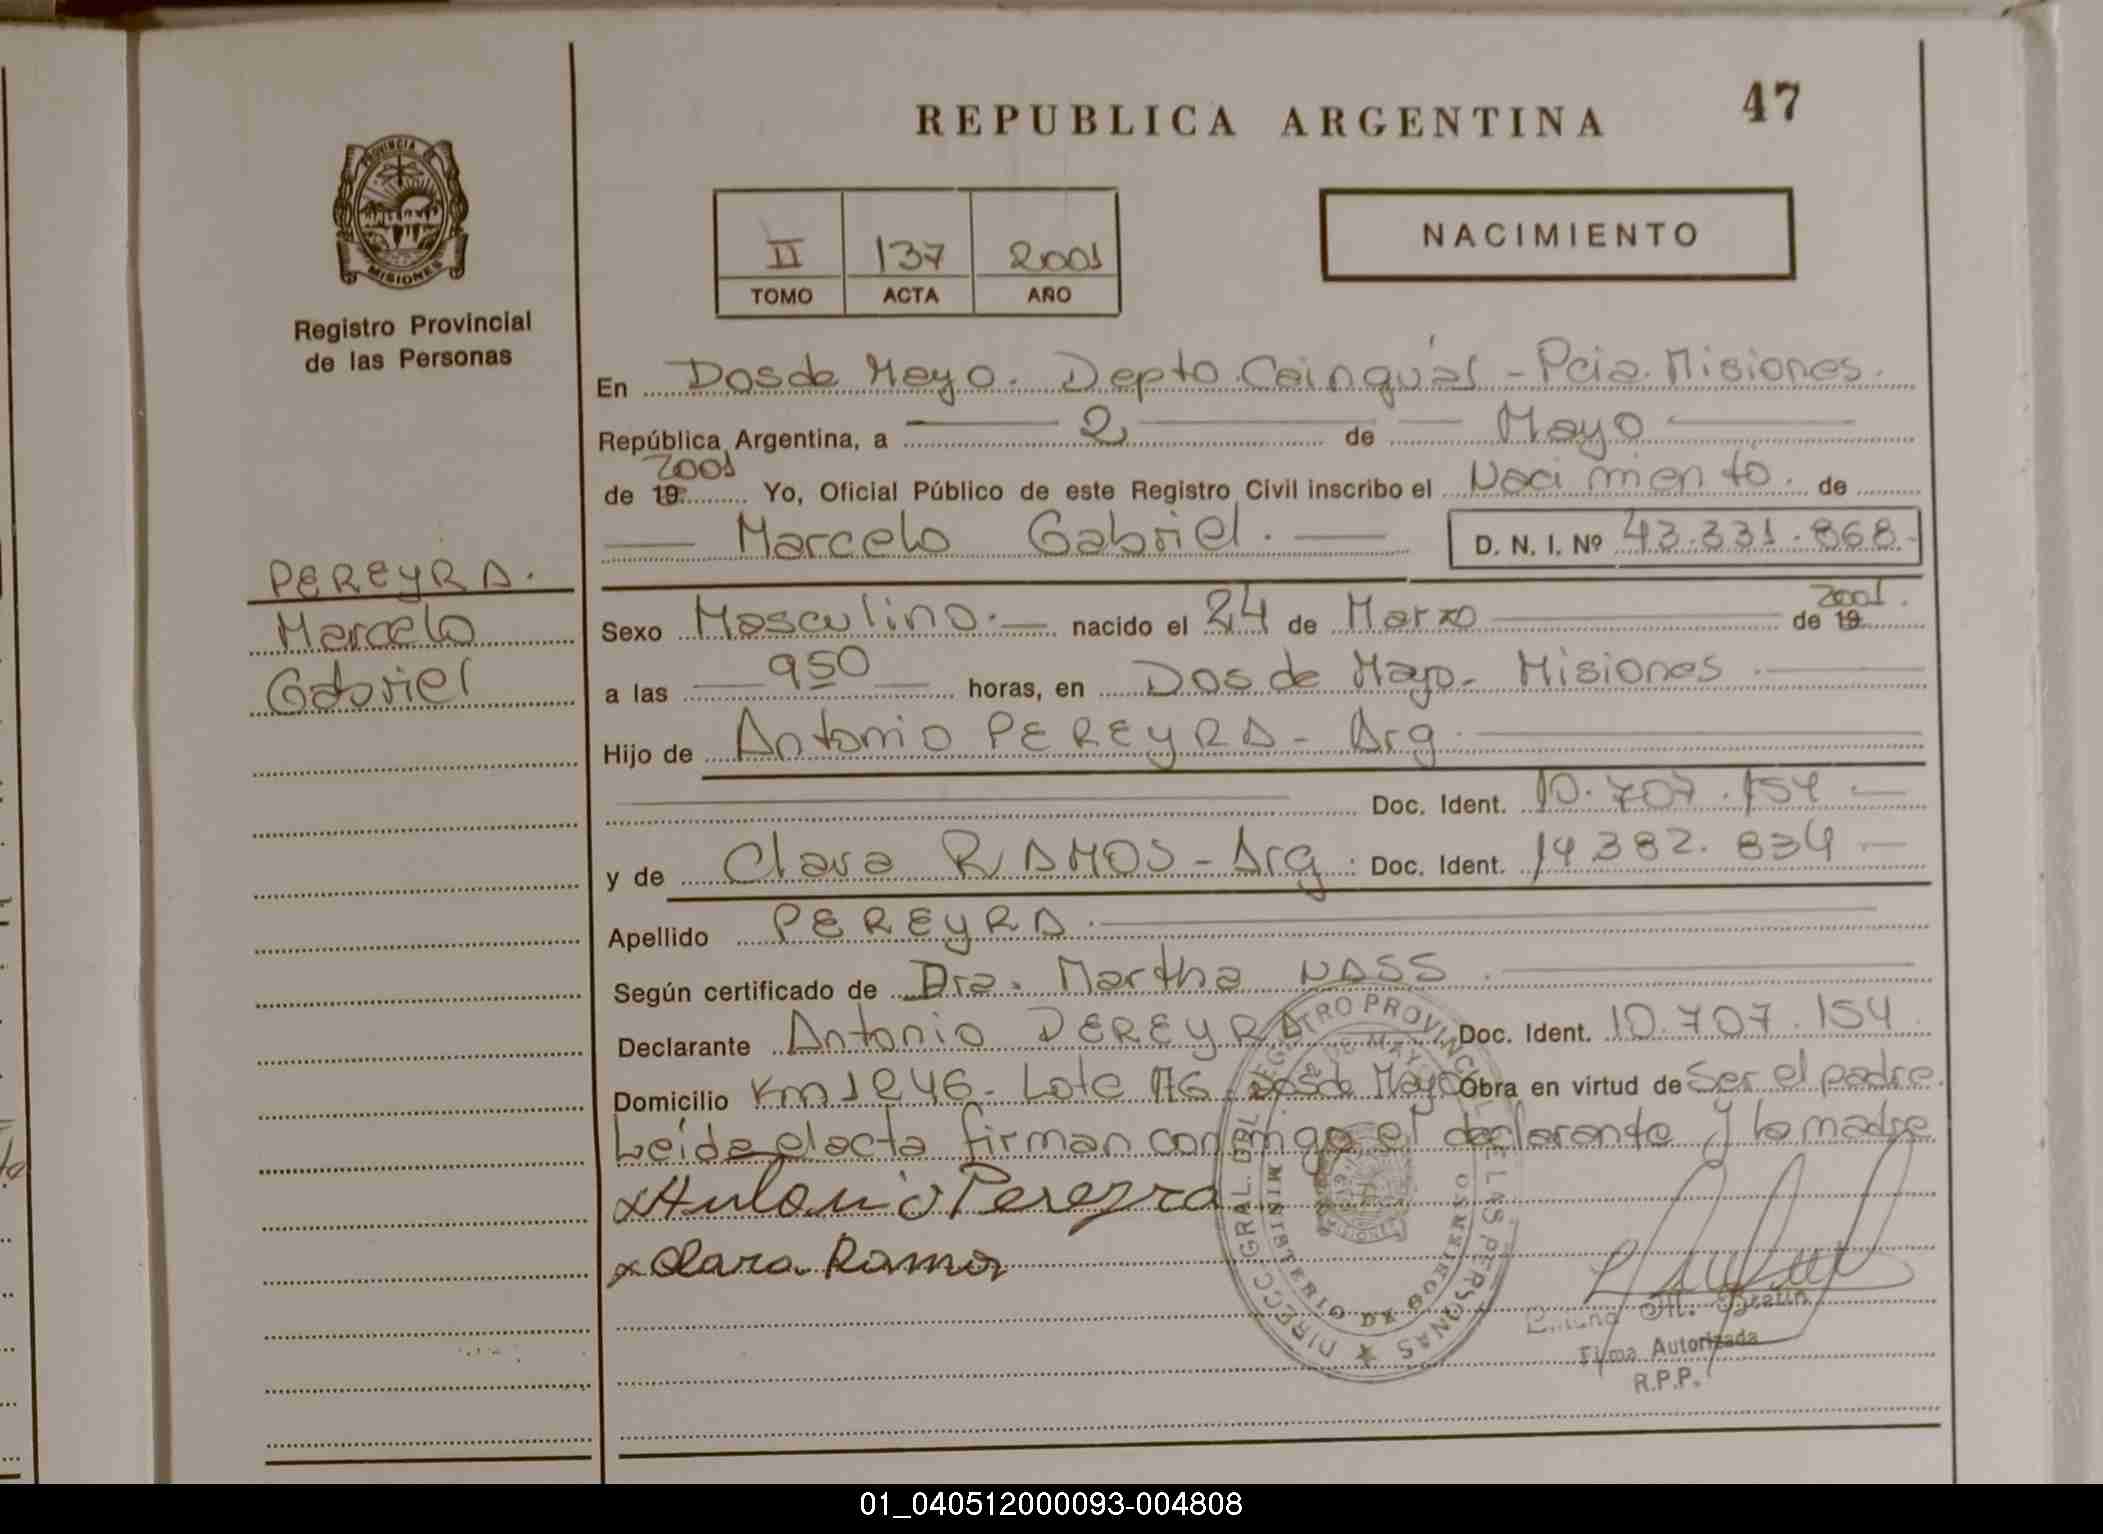 REPUBLICA ARGENTINA
47
PROVINCIA DE
MISIONES
Registro Provincial
de las Personas
II 137 2001
TOMO ACTA AÑO
NACIMIENTO
En Dos de Mayo. Depto Cainguás - Pcia. Misiones.
República Argentina, a 2 de Mayo
2001
de 19 Yo, Oficial Público de este Registro Civil inscribo el Nacimiento. de
Marcelo Gabriel. D. N. I. Nº 43.331.868
PEREYRA.
Marcelo
Gabriel
Sexo Masculino. nacido el 24 de Marzo de 19 2001.
a las 950 horas, en Dos de Mayo - Misiones
Hijo de Antonio PEREYRA - Arg
Doc. Ident. 10.707.154
y de Clara RAMOS - Arg. Doc. Ident. 14.382.834
Apellido PEREYRA
Según certificado de Dra. Martha NASS
Declarante Antonio PEREYRA Doc. Ident. 10.707.154
Domicilio Km 1246 - Lote 176 - Dos de Mayo Obra en virtud de Ser el padre
Leída el acta firman conmigo el declarante y la madre
x Antonio Pereyra
x Clara Ramos
DIRECC. GRAL. DEL REGISTRO PROVINCIAL DE LAS PERSONAS
MINISTERIO DE GOBIERNO
DOS DE MAYO
MISIONES
Firma Autorizada
R.P.P.
01_040512000093-004808